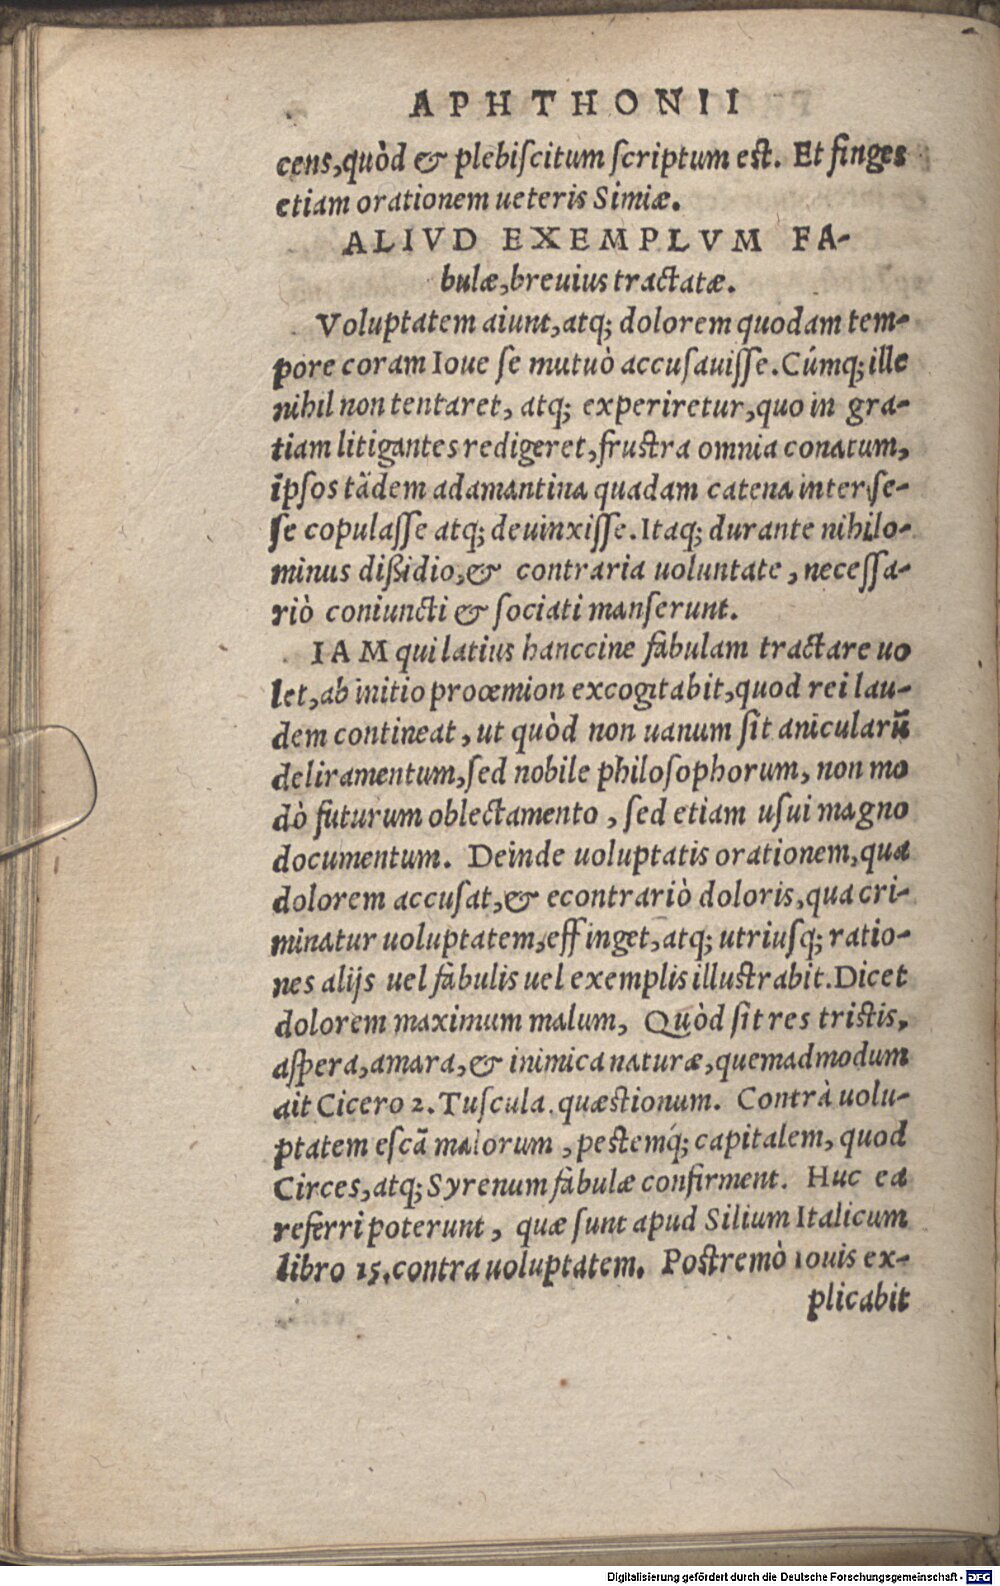 APHTHONII
cens, quòd & plebiscitum scriptum est. Et finges
etiam orationem ueteris Simiæ.
ALIVD EXEMPLVM FA-
bulæ, breuius tractatæ.
Voluptatem aiunt, atq; dolorem quodam tem-
pore coram Ioue se mutuò accusauisse. Cúmq; ille
nihil non tentaret, atq; experiretur, quo in gra-
tiam litigantes redigeret, frustra omnia conatum,
ipsos tãdem adamantina quadam catena inter se-
se copulasse atq; deuinxisse. Itaq; durante nihilo-
minus dißidio, & contraria uoluntate, necessa-
riò coniuncti & sociati manserunt.
IAM qui latius hanccine fabulam tractare uo
let, ab initio proœmion excogitabit, quod rei lau-
dem contineat, ut quòd non uanum sit anicularũ
deliramentum, sed nobile philosophorum, non mo
dò futurum oblectamento, sed etiam usui magno
documentum. Deinde uoluptatis orationem, qua
dolorem accusat, & econtrariò doloris, qua cri-
minatur uoluptatem, effinget, atq; utriusq; ratio-
nes alijs uel fabulis uel exemplis illustrabit. Dicet
dolorem maximum malum, Quòd sit res tristis,
aspera, amara, & inimica naturæ, quemadmodum
ait Cicero 2. Tuscula. quæstionum. Contrà uolu-
ptatem escã malorum, pestemq́; capitalem, quod
Circes, atq; Syrenum fabulæ confirment. Huc ea
referri poterunt, quæ sunt apud Silium Italicum
libro 15. contra uoluptatem. Postremò Iouis ex-
plicabit
Digitalisierung gefördert durch die Deutsche Forschungsgemeinschaft - DFG